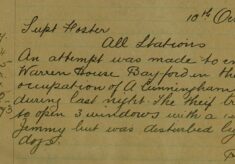 10th O
Supt Foster
All Stations
An attempt was made to en
Warren House Bayford in the
occupation of A Cunningham
during last night. The thief tr
to open 3 windows with a
Jemmy but was disturbed by
dogs.